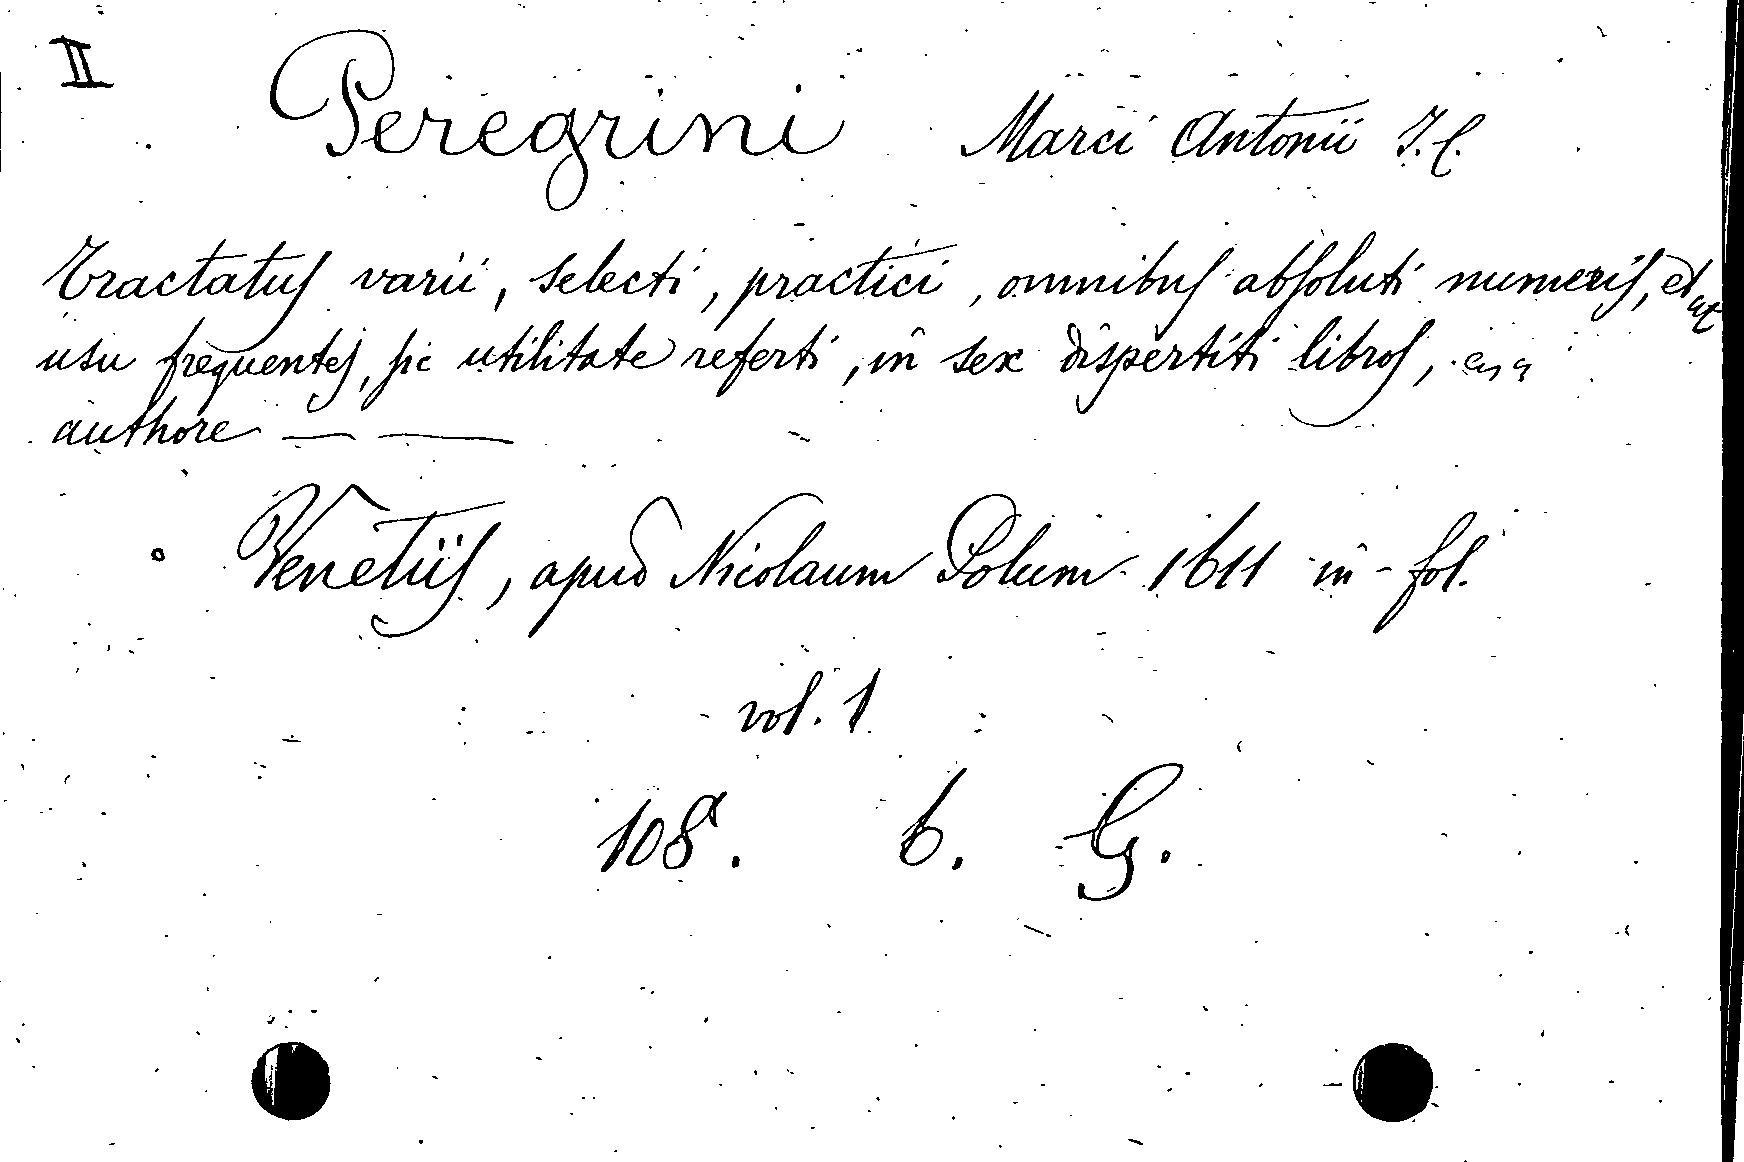 II
Peregrini Marci Antonii J. C.
Tractatus varii, selecti, practici, omnibus absoluti numeris, et ut
usu frequentes, sic utilitate referti, in sex dispertiti libros,
authore — —
Venetiis, apud Nicolaum Polum 1611 in-fol.
vol. 1
108. b. G.